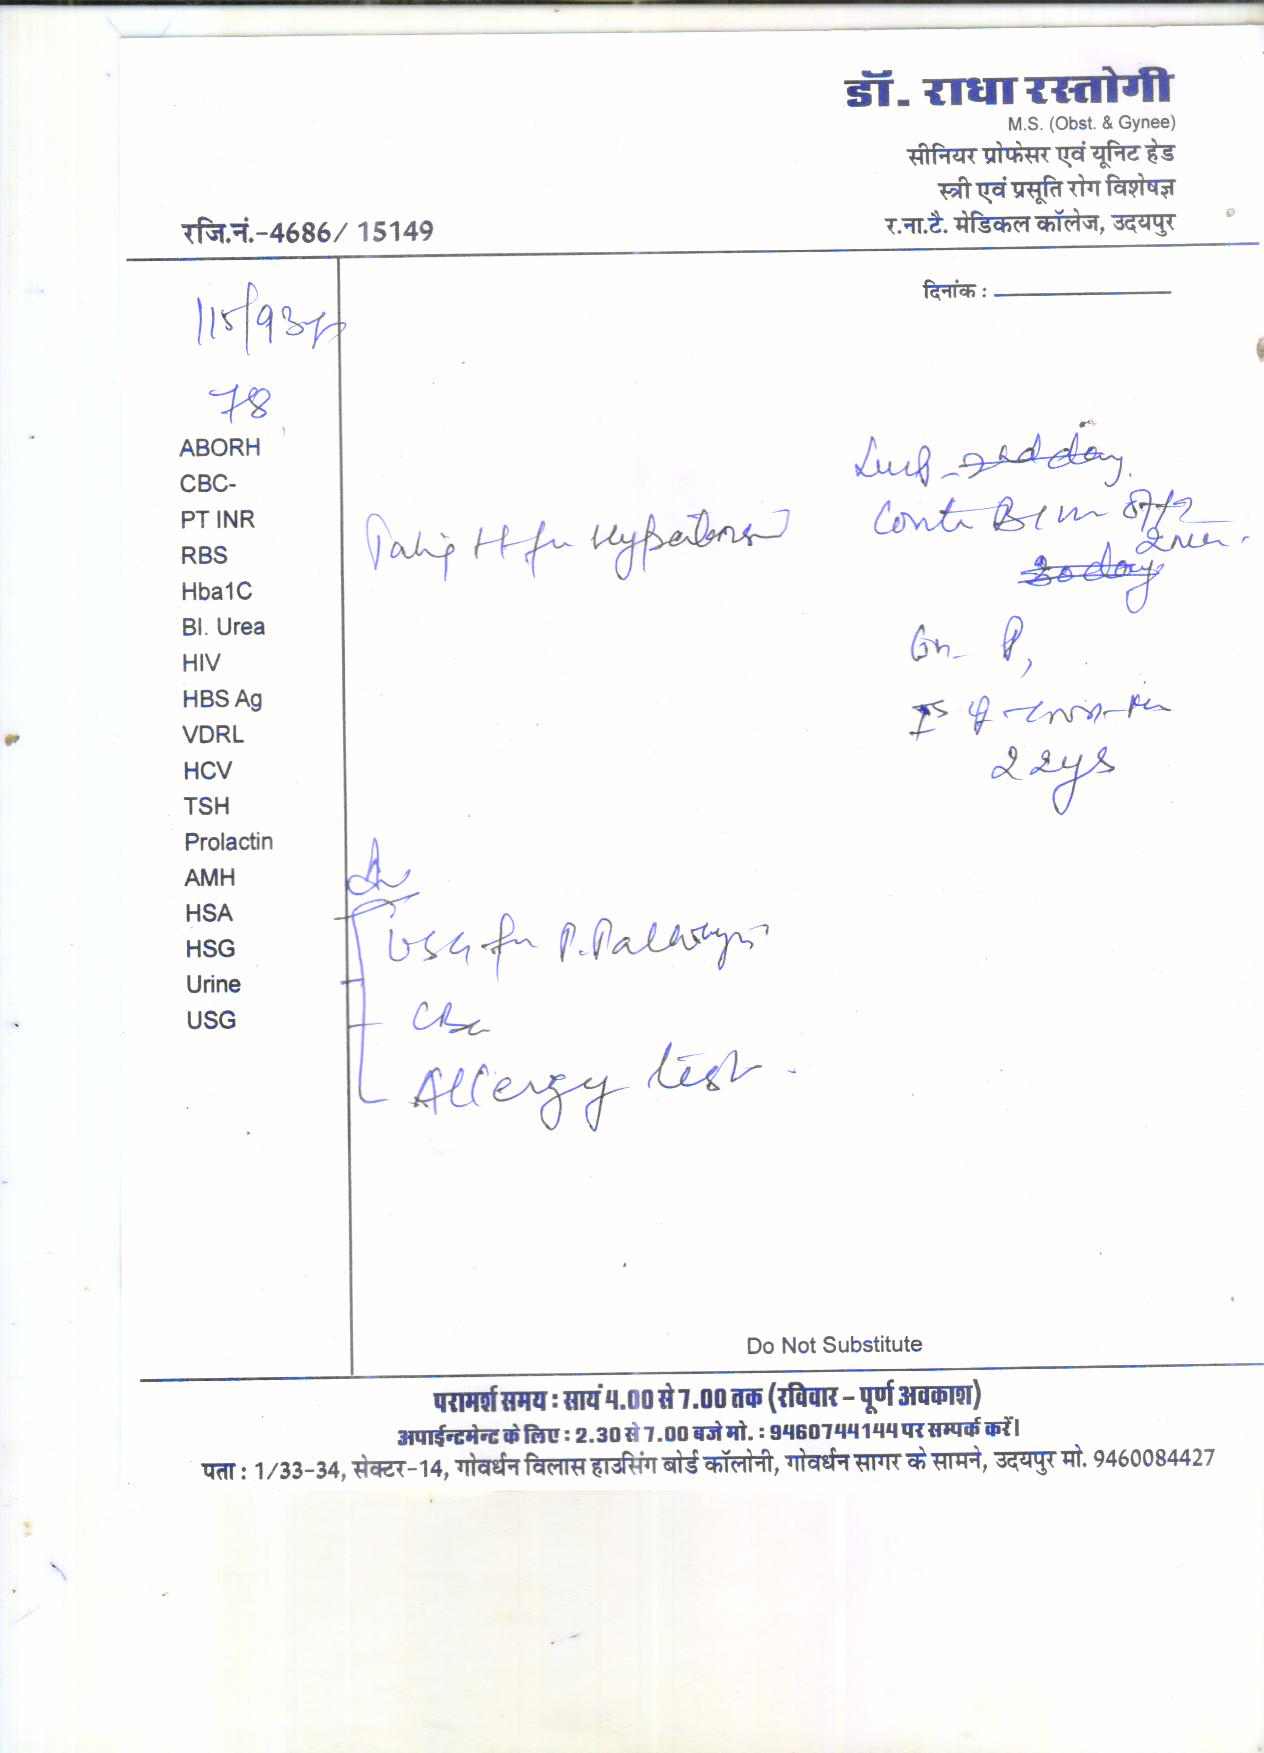 डॉ. राधा रस्तोगी
M.S. (Obst. & Gynee)
सीनियर प्रोफेसर एवं यूनिट हेड
स्त्री एवं प्रसूति रोग विशेषज्ञ
र.ना.टै. मेडिकल कॉलेज, उदयपुर
रजि.नं.-4686/ 15149
दिनांक :
115/93
78
ABORH
CBC-
PT INR
RBS
Hba1C
Bl. Urea
HIV
HBS Ag
VDRL
HCV
TSH
Prolactin
AMH
HSA
HSG
Urine
USG
2nd day
30 day
22 ys
USG for P. Pathology
CBC
Allergy test.
Do Not Substitute
परामर्श समय : सायं 4.00 से 7.00 तक (रविवार – पूर्ण अवकाश)
अपाईन्टमेन्ट के लिए : 2.30 से 7.00 बजे मो. : 9460744144 पर सम्पर्क करें।
पता : 1/33-34, सेक्टर-14, गोवर्धन विलास हाउसिंग बोर्ड कॉलोनी, गोवर्धन सागर के सामने, उदयपुर मो. 9460084427